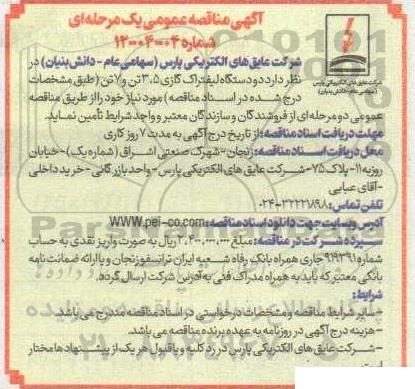 آگهی مناقصه عمومی یک مرحله‌ای
شماره ۰۴-۰۴-۱۲۰۰
شرکت عایق‌های الکتریکی پارس (سهامی عام - دانش‌بنیان) در
نظر دارد دو دستگاه لیفتراک گازی ۳.۵ تن و ۷ تن (طبق مشخصات
درج شده در اسناد مناقصه) مورد نیاز خود را از طریق مناقصه
عمومی دو مرحله‌ای از فروشندگان و سازندگان معتبر و واجد شرایط تأمین نماید.
شرکت عایق‌های الکتریکی پارس
(سهامی عام - دانش بنیان)
مهلت دریافت اسناد مناقصه: از تاریخ درج آگهی به مدت ۷ روز کاری
محل دریافت اسناد مناقصه: زنجان - شهرک صنعتی اشراق (شماره یک) - خیابان
روزبه ۱۱ - پلاک ۷۵ - شرکت عایق‌های الکتریکی پارس - واحد بازرگانی - خرید داخلی
- آقای عبایی
تلفن تماس: ۳۲۲۲۱۸۹۸-۰۲۴
آدرس وبسایت جهت دانلود اسناد مناقصه: WWW.pei-co.com
سپرده شرکت در مناقصه: مبلغ ریال به صورت واریز نقدی به حساب
شماره ۹۱۹۳۹۱ جاری همراه بانک رفاه شعبه ایران ترانسفو زنجان و یا ارائه ضمانت نامه
بانکی معتبر که باید به همراه مدارک فنی به آدرس شرکت ارسال گردد.
شرایط:
- سایر شرایط مناقصه و مشخصات درخواستی در اسناد مناقصه مندرج می باشد.
- هزینه درج آگهی در روزنامه به عهده برنده مناقصه می باشد.
- شرکت عایق‌های الکتریکی پارس در رد کلیه و یا قبول هر یک از پیشنهادها مختار
است